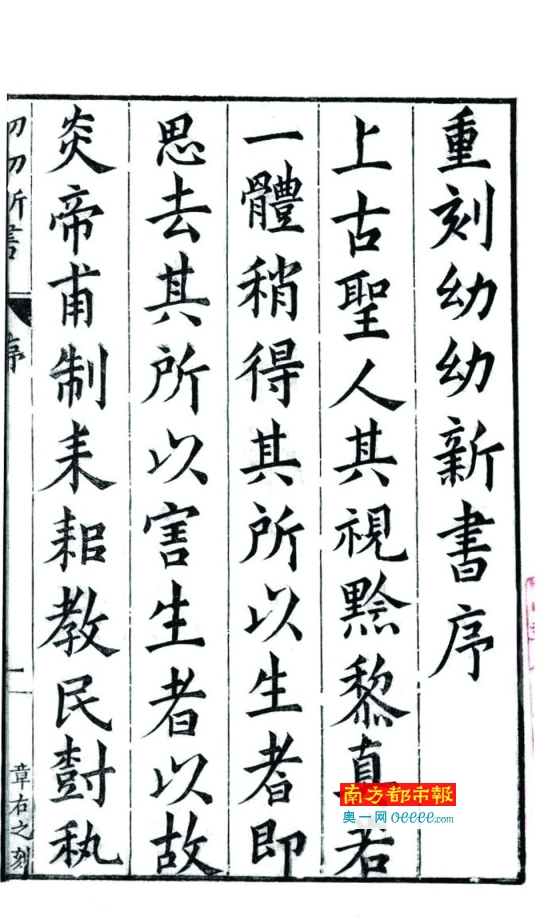 重刻幼幼新書序
上古聖人其視黔黎真若
一體稍得其所以生者即
思去其所以害生者以故
炎帝甫制耒耜教民𡬾秇
幼幼新書
序
一
章右之刻
南方都市報
奥一网 oeeee.com